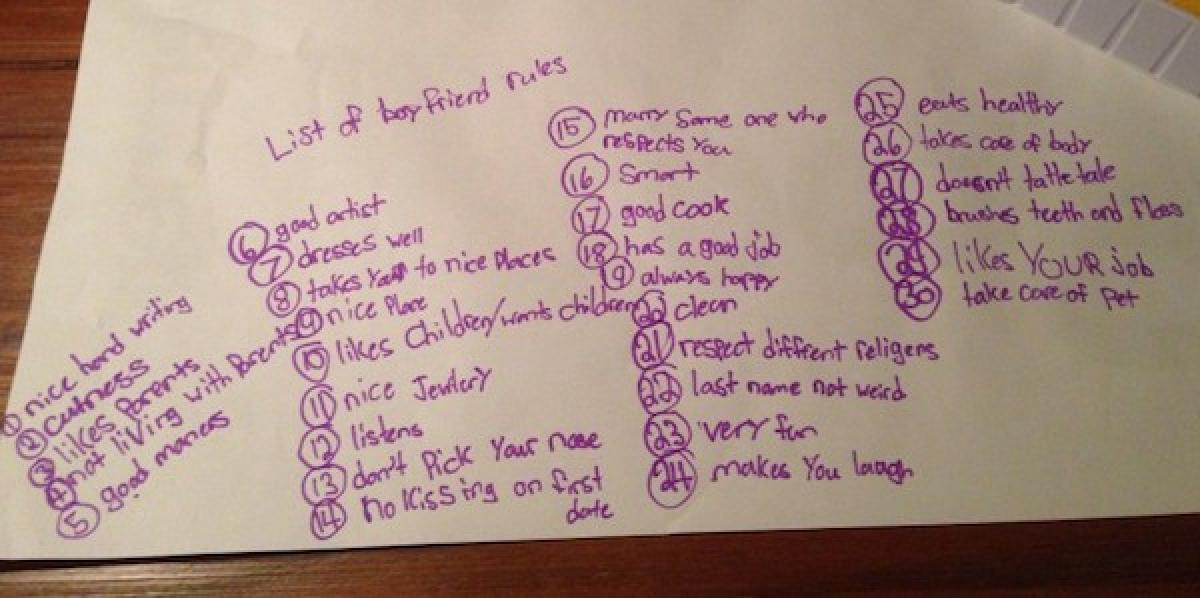 List of boyfriend rules
① nice hand writing
② cutness
③ likes Parents
④ not living with Parents
⑤ good maners
⑥ good artist
⑦ dresses well
⑧ takes You to nice Places
⑨ nice Place
⑩ likes Children/wants children
⑪ nice Jewlery
⑫ listens
⑬ don't Pick Your nose
⑭ no kissing on first
date
⑮ marry some one who
respects You
⑯ Smart
⑰ good cook
⑱ has a good job
⑲ always happy
⑳ clean
㉑ respect diffrent religens
㉒ last name not weird
㉓ very fun
㉔ makes You laugh
㉕ eats healthy
㉖ takes care of body
㉗ doesn't tattle tale
㉘ brushes teeth and floss
㉙ likes YOUR job
㉚ take care of pet